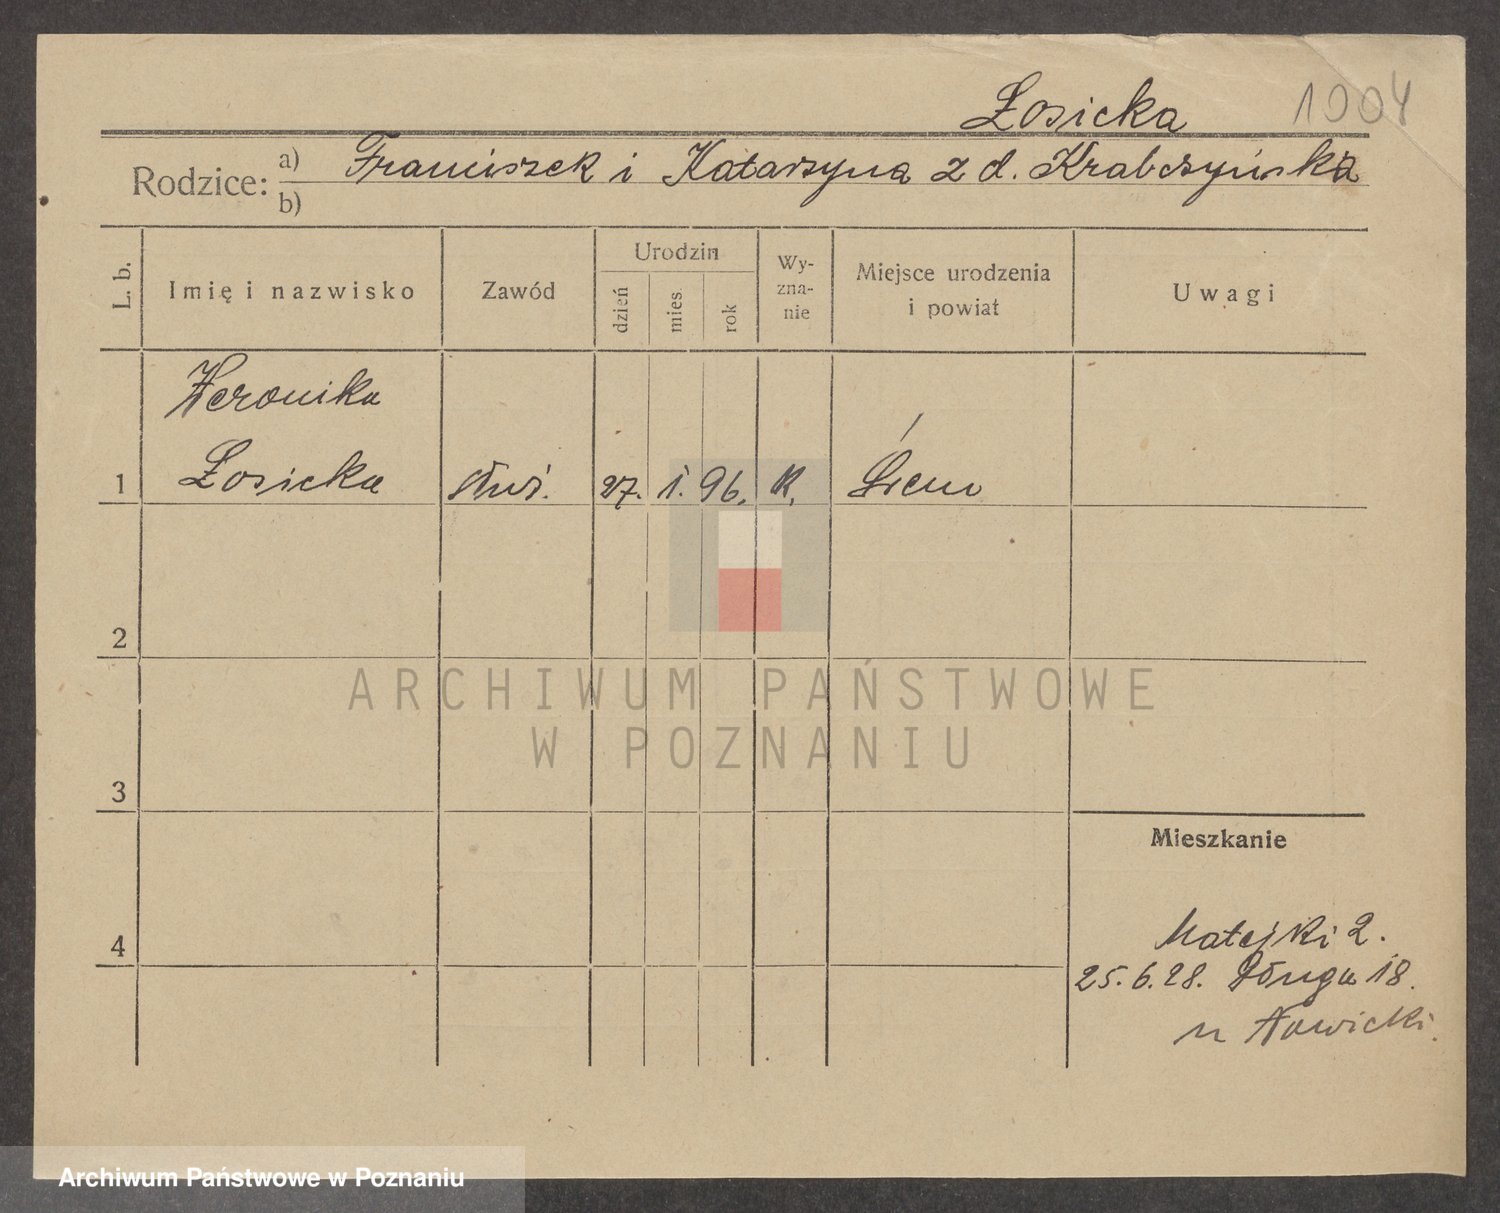 Łosicka
1004
Rodzice: a) Franciszek i Katarzyna z d. Krabczyńska
b)
L. b.
Imię i nazwisko
Zawód
Urodzin
dzień
mies.
rok
Wy-
zna-
nie
Miejsce urodzenia
i powiat
Uwagi
Weronika
1 Łosicka służ. 27. I. 96. K. Śrem
2
3
4
ARCHIWUM PAŃSTWOWE
W POZNANIU
Mieszkanie
Matejki 2.
25.6.28. Długa 18.
u Nowicki.
Archiwum Państwowe w Poznaniu